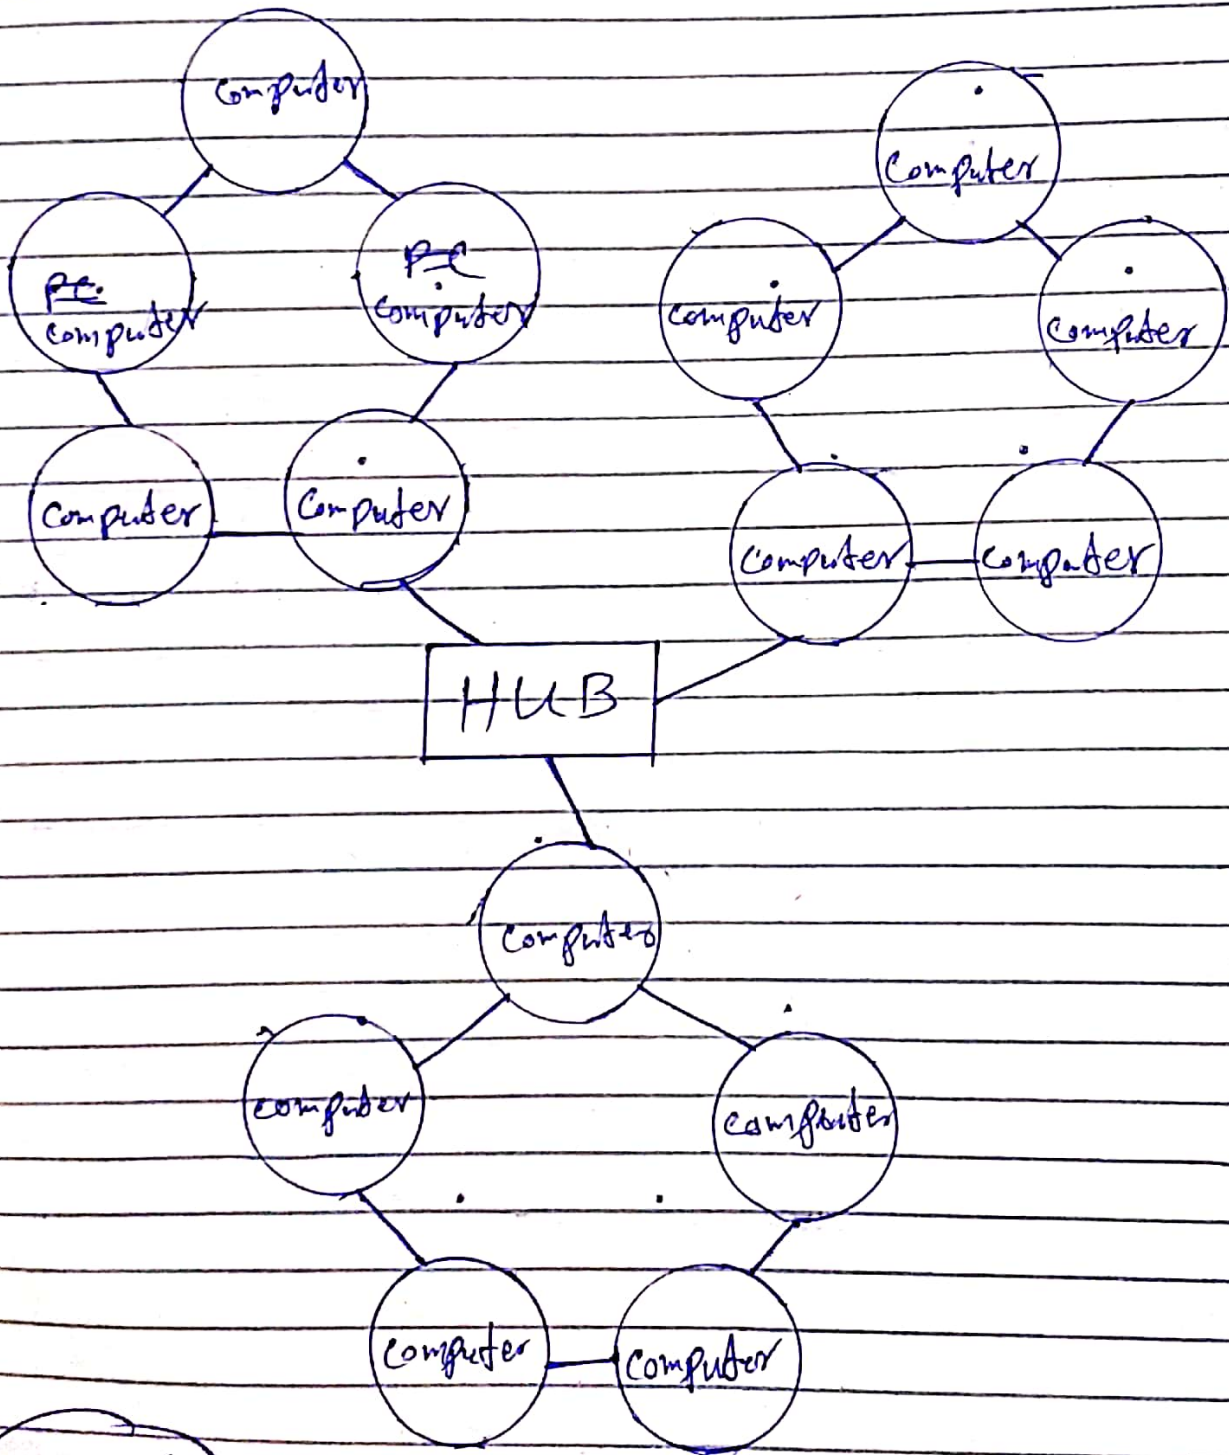 Computer
Computer
PC
computer
PC
computer
computer
Computer
Computer
Computer
Computer
Computer
Computer
HUB
Computer
computer
computer
computer
computer